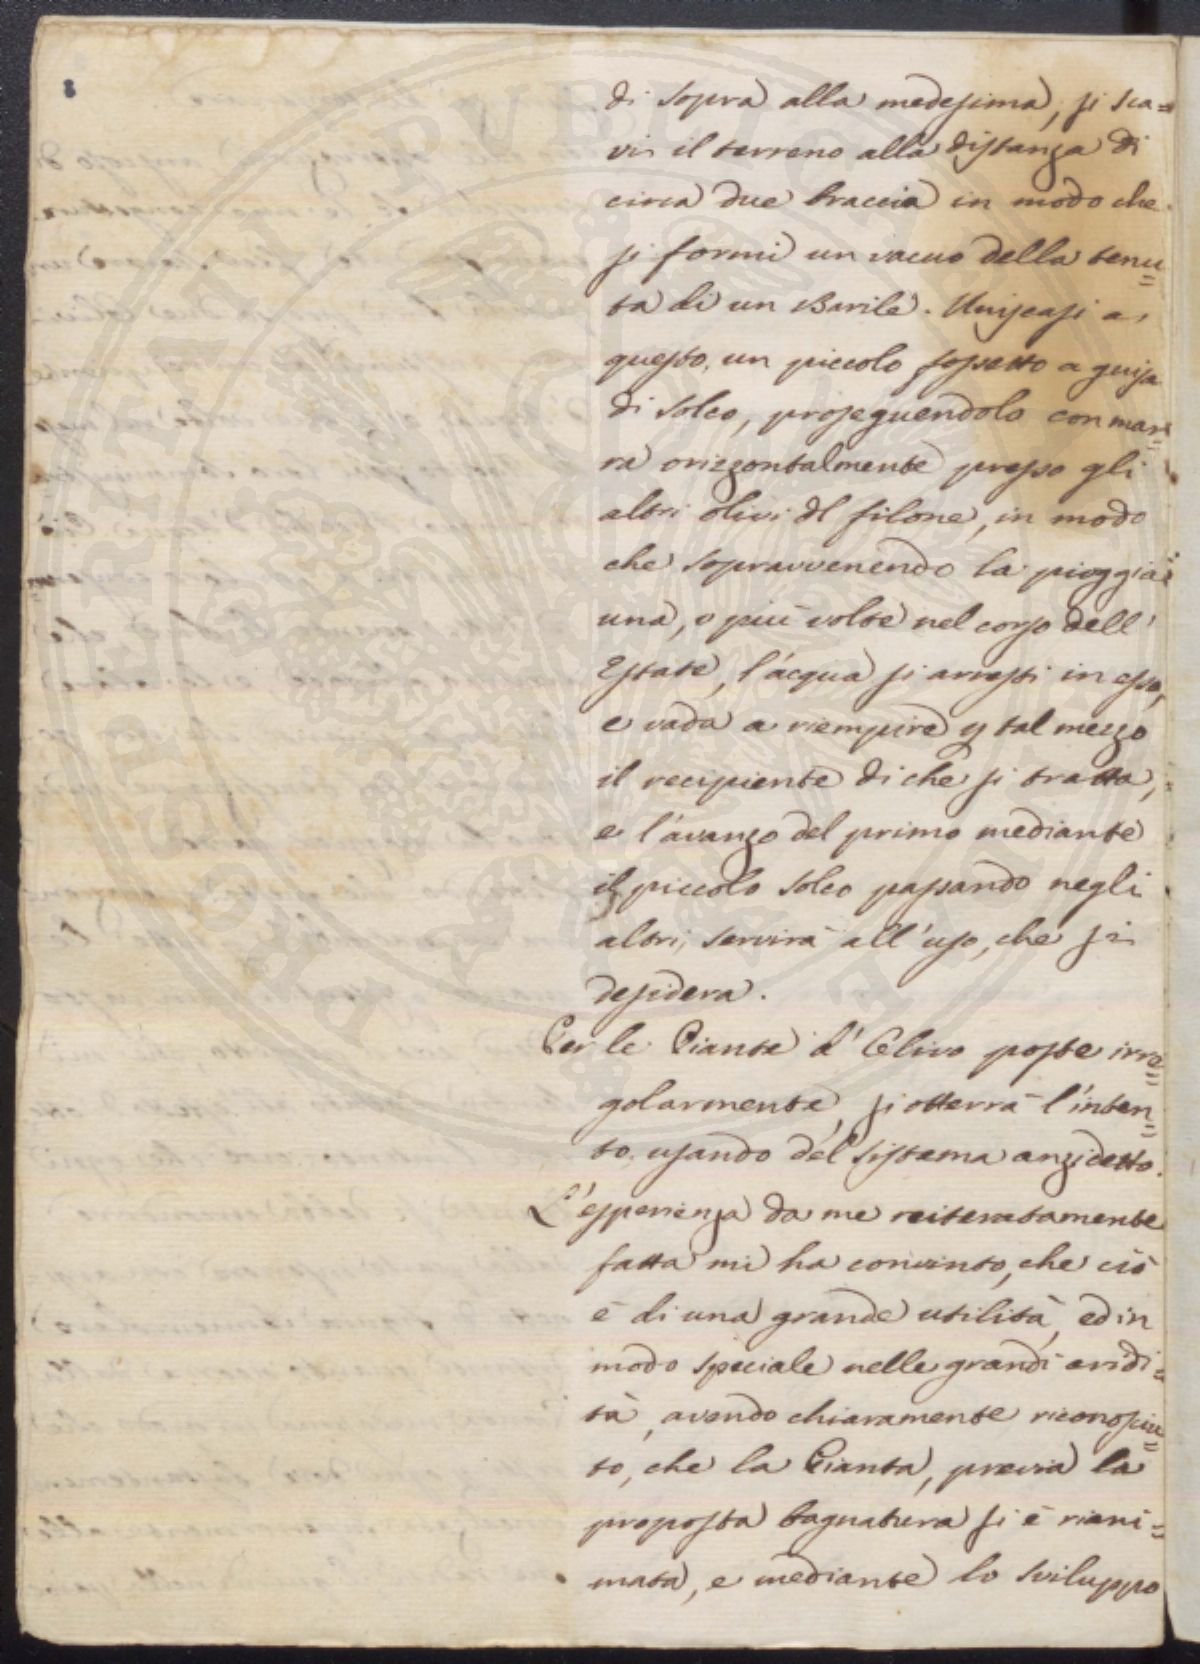 di sopra alla medesima, si sca=
vi il terreno alla distanza di
circa due braccia in modo che
si formi un vacuo della tenu=
ta di un Barile. Uniscasi a
questo, un piccolo fossetto a guisa
di solco, proseguendolo con mar=
ra orizzontalmente presso gli
altri olivi del filone, in modo
che sopravvenendo la pioggia
una, o più volte nel corso dell'
Estate, l'acqua si arresti in esso,
e vada a riempire p tal mezzo
il recipiente di che si tratta,
e l'avanzo del primo mediante
il piccolo solco passando negli
altri, servirà all'uso, che si
desidera.
Per le Piante d'Olivo poste irre=
golarmente, si otterrà l'inten=
to, usando del sistema anzidetto.
L'esperienza da me reiteratamente
fatta mi ha convinto, che ciò
è di una grande utilità, ed in
modo speciale nelle grandi aridi=
tà, avendo chiaramente riconosciu=
to, che la Pianta, previa la
proposta bagnatura si è riani=
mata, e mediante lo sviluppo